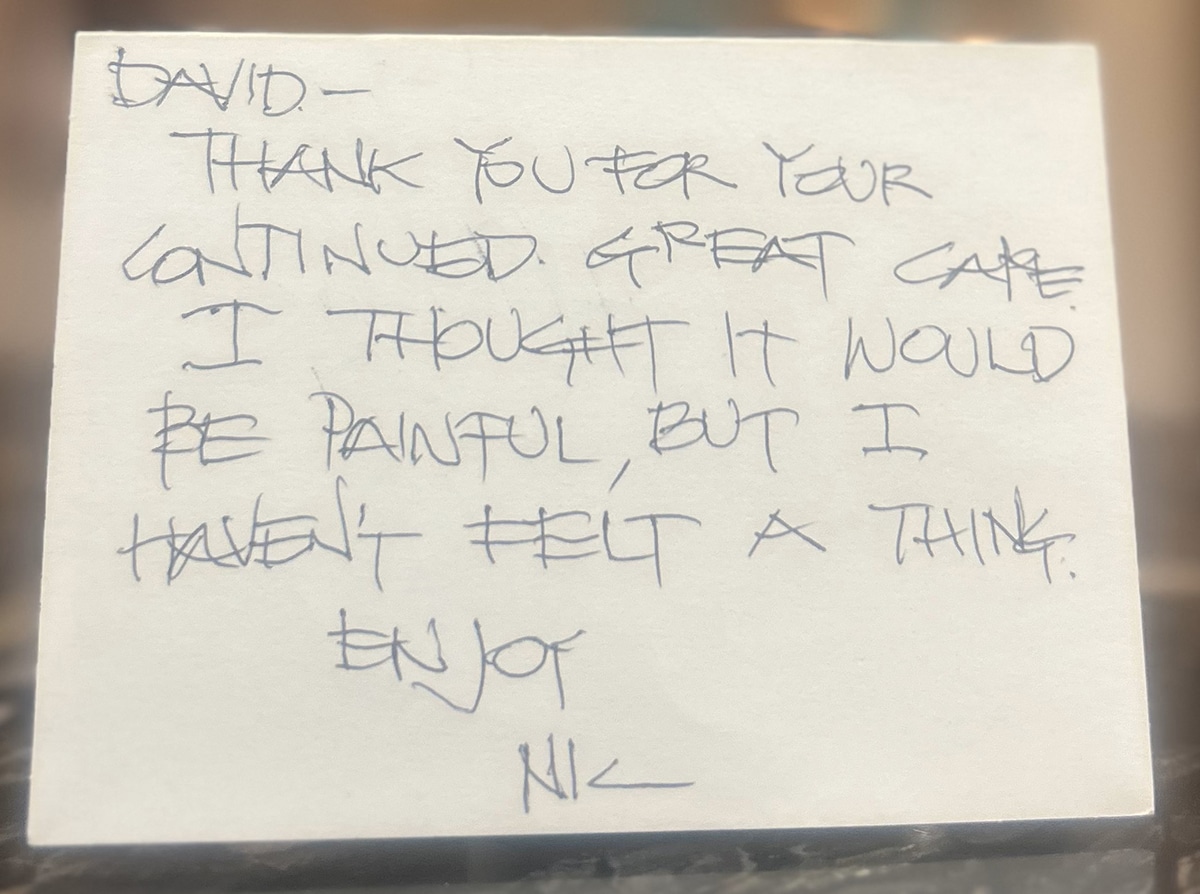 DAVID. —
THANK YOU FOR YOUR
CONTINUED. GREAT CARE.
I THOUGHT IT WOULD
BE PAINFUL, BUT I
HAVEN'T FELT A THING.
ENJOY
NIC